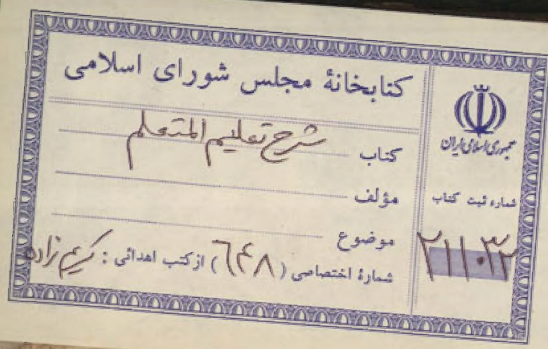 کتابخانهٔ مجلس شورای اسلامی
کتاب شرح تعلیم المتعلم
مؤلف
موضوع
شمارهٔ اختصاصی (۶۴۸) از کتب اهدائی : کریم زاده
جمهوری اسلامی ایران
شماره ثبت کتاب
۲۱۱۰۳۲